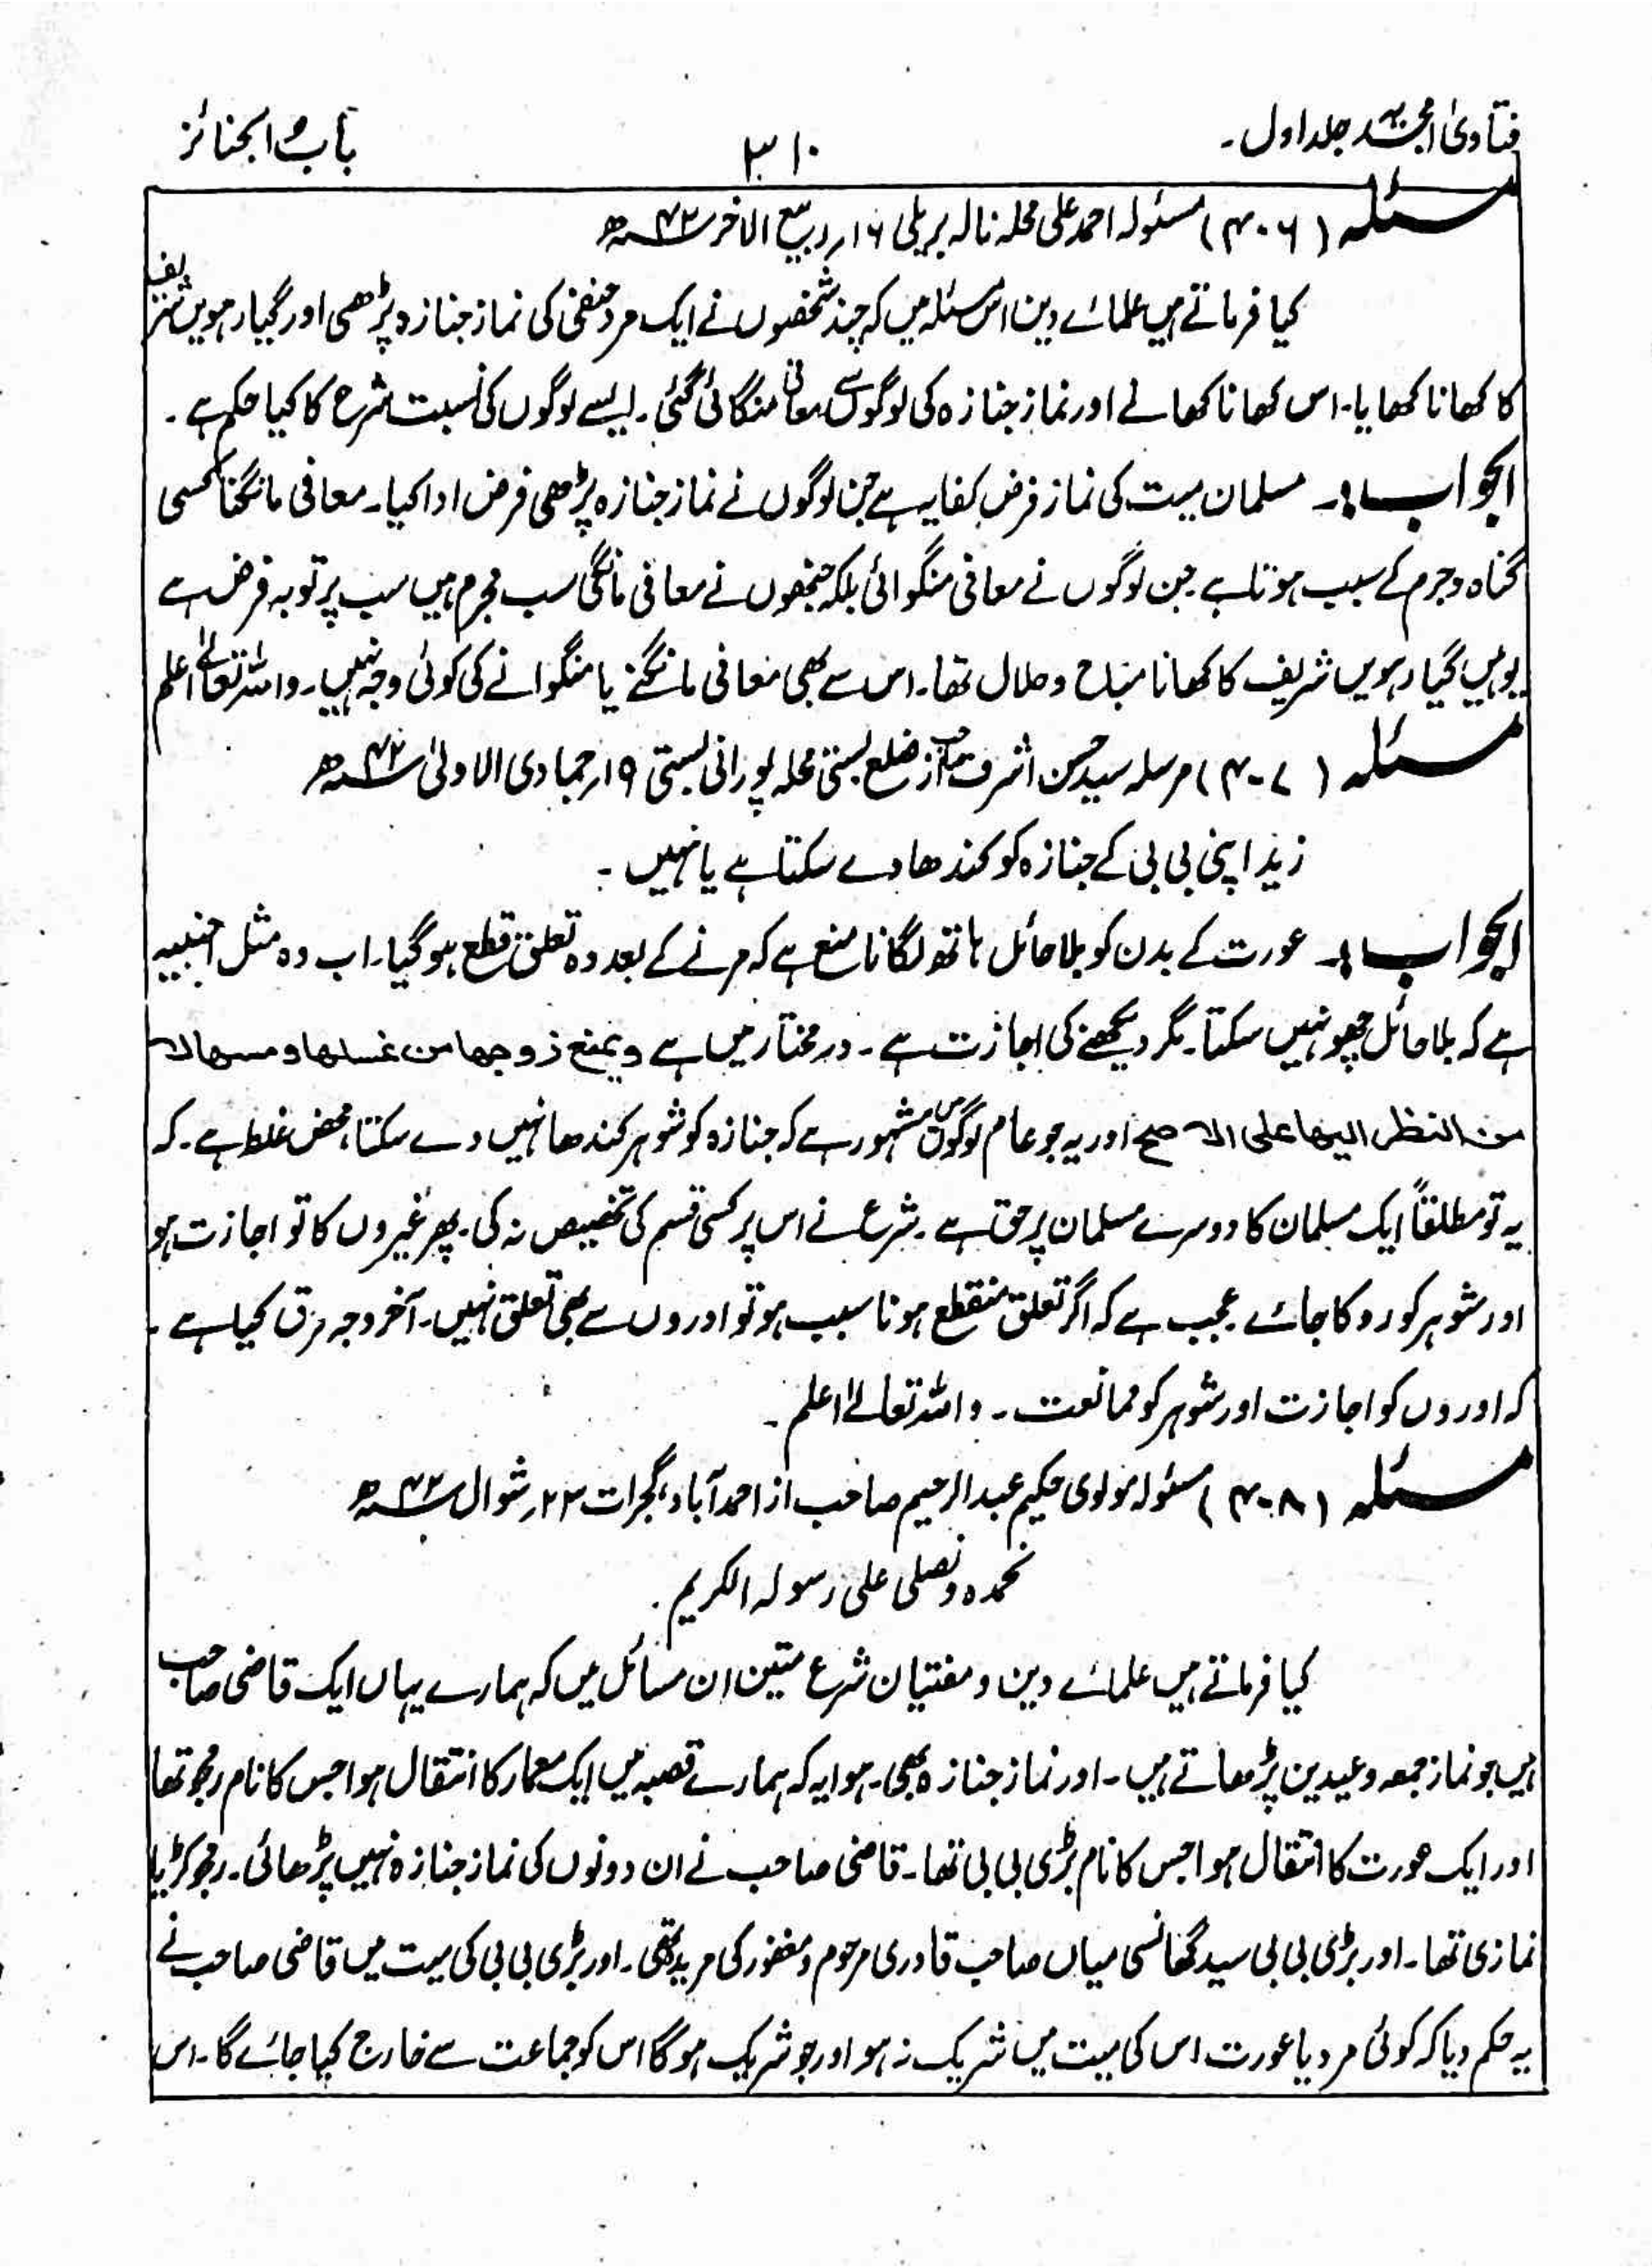 فتاویٰ امجدیہ جلد اول۔
۳۱۰
باب الجنائز
مسئلہ (۴۰۶) مسئولہ احمد علی محلہ نالہ بریلی ۱۶ر ربیع الآخر ۴۳ھ
کیا فرماتے ہیں علمائے دین اس مسئلہ میں کہ چند شخصوں نے ایک مرد حنفی کی نماز جنازہ پڑھی اور گیارہویں شریف
کا کھانا کھایا۔ اس کھانا کھانے اور نماز جنازہ کی لوگوں سے معافی منگائی گئی۔ ایسے لوگوں کی نسبت شرع کا کیا حکم ہے۔
الجواب:۔ مسلمان میت کی نماز فرض کفایہ ہے جن لوگوں نے نماز جنازہ پڑھی فرض ادا کیا۔ معافی مانگنا کسی
گناہ وجرم کے سبب ہوتا ہے جن لوگوں نے معافی منگوائی بلکہ جنھوں نے معافی مانگی سب مجرم ہیں سب پر توبہ فرض ہے
یوہیں گیارہویں شریف کا کھانا مباح وحلال تھا۔ اس سے بھی معافی مانگنے یا منگوانے کی کوئی وجہ نہیں۔ واللہ تعالےٰ اعلم
مسئلہ (۴۰۷) مرسلہ سید حسن اشرف صاحب از ضلع بستی محلہ پورانی بستی ۱۹ر جمادی الاولیٰ ۴۳ھ
زید اپنی بی بی کے جنازہ کو کندھا دے سکتا ہے یا نہیں۔
الجواب:۔ عورت کے بدن کو بلا حائل ہاتھ لگانا منع ہے کہ مرنے کے بعد وہ تعلق قطع ہوگیا۔ اب وہ مثل اجنبیہ
ہے کہ بلا حائل چھو نہیں سکتا۔ مگر دیکھنے کی اجازت ہے۔ درمختار میں ہے ویمنع زوجھا من غسلھا ومسھا لا
من النظر الیھا علی الاصح اور یہ جو عام لوگوں میں مشہور ہے کہ جنازہ کو شوہر کندھا نہیں دے سکتا، محض غلط ہے۔ کہ
یہ تو مطلقاً ایک مسلمان کا دوسرے مسلمان پر حق ہے۔ شرع نے اس پر کسی قسم کی تخصیص نہ کی۔ پھر غیروں کا تو اجازت ہو
اور شوہر کو روکا جائے عجب ہے کہ اگر تعلق منقطع ہونا سبب ہو تو اوروں سے بھی تعلق نہیں۔ آخر وجہ فرق کیا ہے۔
کہ اوروں کو اجازت اور شوہر کو ممانعت۔ واللہ تعالےٰ اعلم۔
مسئلہ (۴۰۸) مسئولہ مولوی حکیم عبدالرحیم صاحب از احمدآباد، گجرات ۲۲ر شوال ۴۳ھ
نحمدہ ونصلی علیٰ رسولہ الکریم۔
کیا فرماتے ہیں علمائے دین و مفتیان شرع متین ان مسائل میں کہ ہمارے یہاں ایک قاضی صاحب
ہیں جو نماز جمعہ وعیدین پڑھاتے ہیں۔ اور نماز جنازہ بھی۔ ہوا یہ کہ ہمارے قصبہ میں ایک معمار کا انتقال ہوا جس کا نام رجو تھا
اور ایک عورت کا انتقال ہوا جس کا نام بڑی بی بی تھا۔ قاضی صاحب نے ان دونوں کی نماز جنازہ نہیں پڑھائی۔ رجو کڑیا
نمازی تھا۔ اور بڑی بی بی سید گھانسی میاں صاحب قادری مرحوم ومغفور کی مرید تھی۔ اور بڑی بی بی کی میت میں قاضی صاحب نے
یہ حکم دیا کہ کوئی مرد یا عورت اس کی میت میں شریک نہ ہو اور جو شریک ہوگا اس کو جماعت سے خارج کیا جائے گا۔ اس